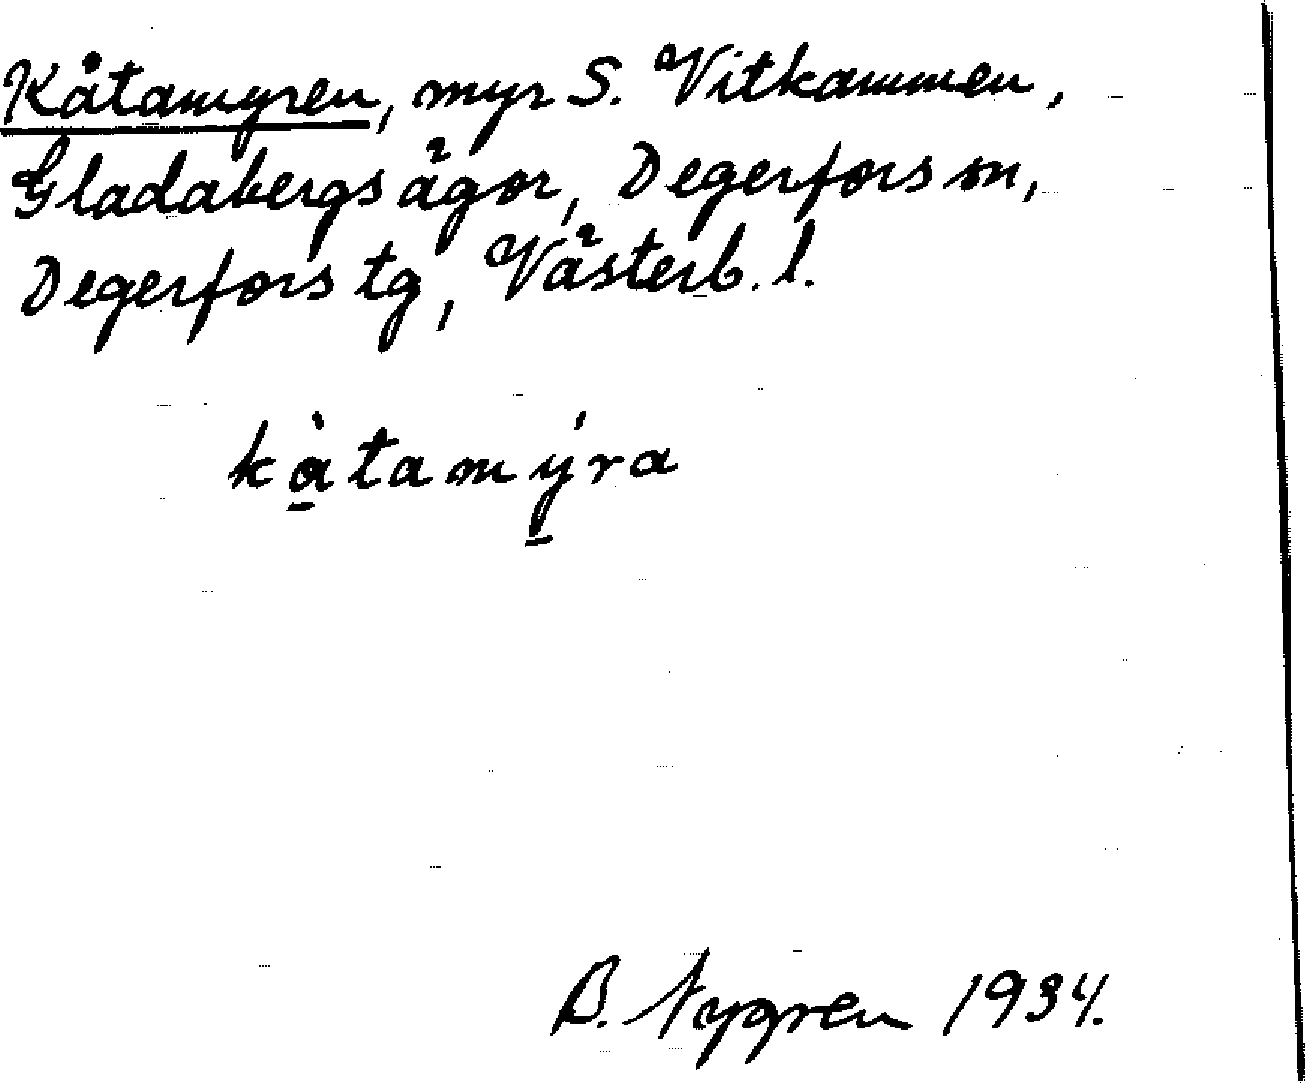 Kåtamyren, myr S. Vitkammen,
Gladabergs ägor, Degerfors sn,
Degerfors tg, Västerb. l.
kàtamýra
B. Nygren 1934.